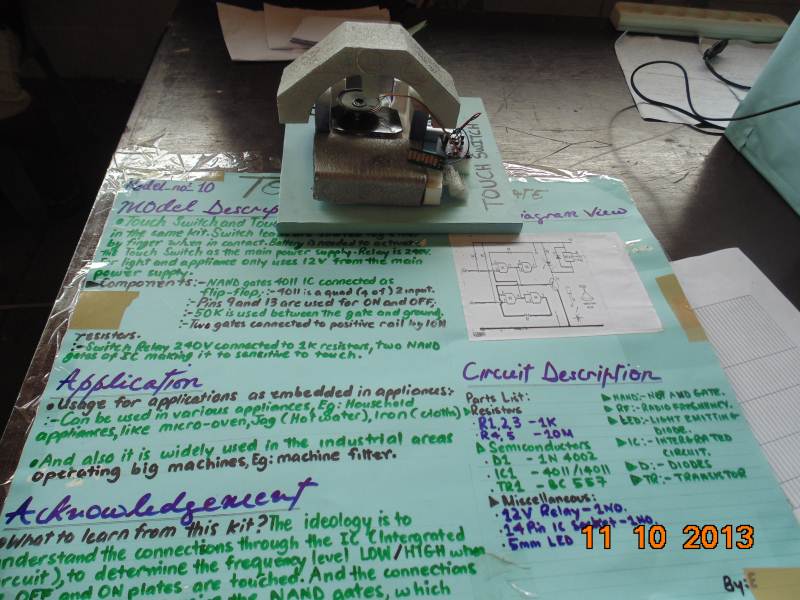 Model no: 10
TOUCH SWITCH
Model Descrip
Diagram View
• Touch Switch and Tou
in the same kit. Switch
by finger when in contact. Battery is needed to actuate
the Touch Switch as the main power supply. Relay is 240V
for light and appliance only uses 12V from the main
power supply.
Components:- NAND gates 4011 IC connected as
Flip-flop, :- 4011 is a quad (4 of) 2 input.
:- Pins 9 and 13 are used for ON and OFF.
:- 50K is used between the gate and ground.
:- Two gates connected to positive rail by 10M
resistors.
:- Switch Relay 240V connected to 1K resistors, two NAND
gates of IC making it to sensitive to touch.
Application
• Usage for applications as embedded in appliances:-
:- Can be used in various appliances, Eg: Household
appliances, like micro-oven, Jag (Hot water), Iron (cloth)
• And also it is widely used in the industrial areas
operating big machines, Eg: machine filter.
Acknowledgement
• What to learn from this kit? The ideology is to
understand the connections through the IC (Intergrated
circuit), to determine the frequency level LOW/HIGH when
OFF and ON plates are touched. And the connections
the NAND gates, which
Circuit Description
Parts List:
Resistors
• R1,2,3 - 1K
• R4,5 - 10M
Semiconductors
• D1 - 1N 4002
• IC1 - 4011/14011
• TR1 - BC 557
Miscellaneous:
• 12V Relay - 1NO.
• 14 Pin IC Socket - 1NO.
• 5mm LED
NAND:- NOT AND GATE.
RF:- RADIO FREQUENCY
LED:- LIGHT EMITTING
DIODE.
IC:- INTERGRATED
CIRCUIT.
D:- DIODES
TR:- TRANSISTOR
By:
11 10 2013